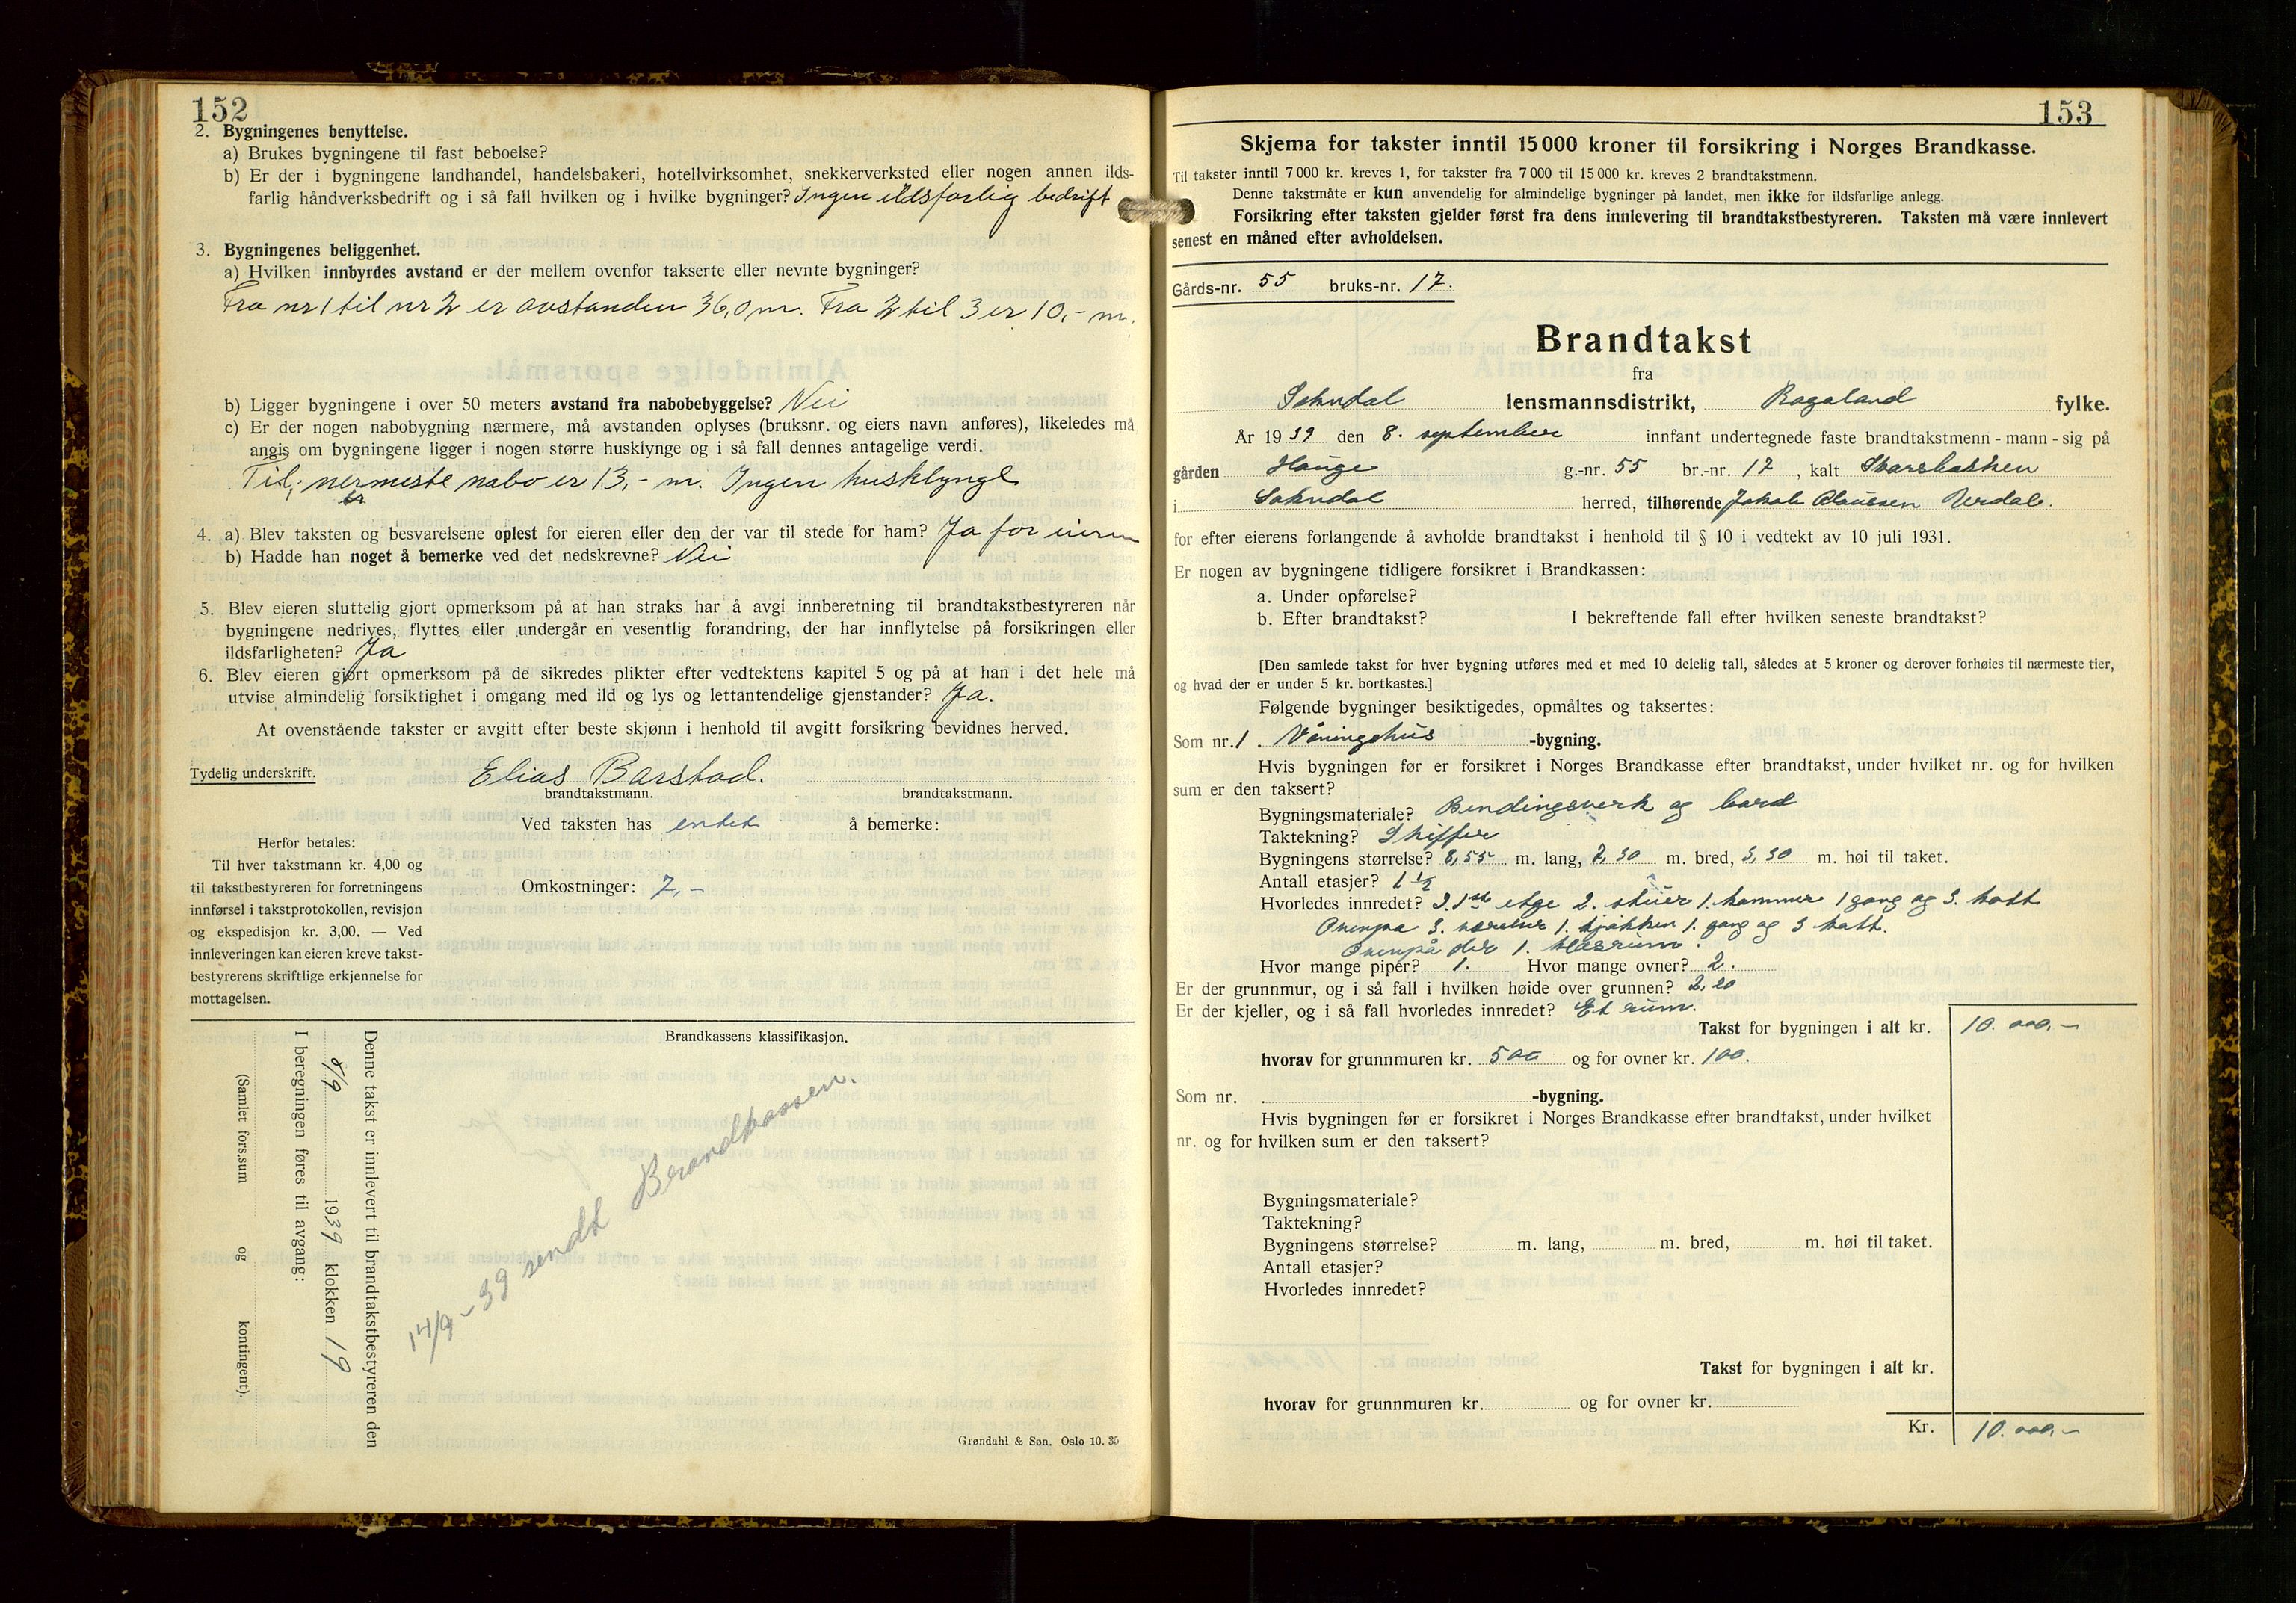 152
2. Bygningenes benyttelse.
a) Brukes bygningene til fast beboelse?
b) Er der i bygningene landhandel, handelsbakeri, hotellvirksomhet, snekkerverksted eller nogen annen ilds-
farlig håndverksbedrift og i så fall hvilken og i hvilke bygninger? Ingen ildsfarlig bedrift
3. Bygningenes beliggenhet.
a) Hvilken innbyrdes avstand er der mellem ovenfor takserte eller nevnte bygninger?
Fra nr 1 til nr 2 er avstanden 36,0 m. Fra 2 til 3 er 10,- m.
b) Ligger bygningene i over 50 meters avstand fra nabobebyggelse? Nei
c) Er der nogen nabobygning nærmere, må avstanden oplyses (bruksnr. og eiers navn anføres), likeledes må
angis om bygningene ligger i nogen større husklynge og i så fall dennes antagelige verdi.
Til nermeste nabo er 13,- m. Ingen husklynge
4. a) Blev taksten og besvarelsene oplest for eieren eller den der var til stede for ham? Ja for eieren
b) Hadde han noget å bemerke ved det nedskrevne? Nei
5. Blev eieren sluttelig gjort opmerksom på at han straks har å avgi innberetning til brandtakstbestyreren når
bygningene nedrives, flyttes eller undergår en vesentlig forandring, der har innflytelse på forsikringen eller
ildsfarligheten? Ja
6. Blev eieren gjort opmerksom på de sikredes plikter efter vedtektens kapitel 5 og på at han i det hele må
utvise almindelig forsiktighet i omgang med ild og lys og lettantendelige gjenstander? Ja.
At ovenstående takster er avgitt efter beste skjønn i henhold til avgitt forsikring bevidnes herved.
Tydelig underskrift. Elias Barstad.
brandtakstmann. brandtakstmann.
Ved taksten has entet å bemerke:
Herfor betales:
Til hver takstmann kr. 4,00 og
til takstbestyreren for forretningens
innførsel i takstprotokollen, revisjon
og ekspedisjon kr. 3,00. — Ved
innleveringen kan eieren kreve takst-
bestyrerens skriftlige erkjennelse for
mottagelsen.
Omkostninger: 7,-
Brandkassens klassifikasjon.
Denne takst er innlevert til brandtakstbestyreren den
8/9 1939 klokken 19
I beregningen føres til avgang:
(Samlet fors.sum og kontingent).
14/9-39 sendt Brandkassen.
Grøndahl & Søn, Oslo 10. 35
153
Skjema for takster inntil 15 000 kroner til forsikring i Norges Brandkasse.
Til takster inntil 7 000 kr. kreves 1, for takster fra 7 000 til 15 000 kr. kreves 2 brandtakstmenn.
Denne takstmåte er kun anvendelig for almindelige bygninger på landet, men ikke for ildsfarlige anlegg.
Forsikring efter taksten gjelder først fra dens innlevering til brandtakstbestyreren. Taksten må være innlevert
senest en måned efter avholdelsen.
Gårds-nr. 55 bruks-nr. 17.
Brandtakst
fra
Sokndal lensmannsdistrikt, Rogaland fylke.
År 1939 den 8. september innfant undertegnede faste brandtakstmenn - mann - sig på
gården Hauge g.-nr. 55 br.-nr. 17, kalt
i Sokndal herred, tilhørende Jakob Claussen Urdal.
for efter eierens forlangende å avholde brandtakst i henhold til § 10 i vedtekt av 10 juli 1931.
Er nogen av bygningene tidligere forsikret i Brandkassen:
a. Under opførelse?
b. Efter brandtakst? I bekreftende fall efter hvilken seneste brandtakst?
[Den samlede takst for hver bygning utføres med et med 10 delelig tall, således at 5 kroner og derover forhøies til nærmeste tier,
og hvad der er under 5 kr. bortkastes.]
Følgende bygninger besiktigedes, opmåltes og taksertes:
Som nr. 1. Våningshus -bygning.
Hvis bygningen før er forsikret i Norges Brandkasse efter brandtakst, under hvilket nr. og for hvilken
sum er den taksert?
Bygningsmateriale? Bindingsverk og bord
Taktekning? Skiffer
Bygningens størrelse? 8,55 m. lang, 7,30 m. bred, 5,50 m. høi til taket.
Antall etasjer? 1 ½
Hvorledes innredet? I 1ste etge 2. stuer 1. kammer 1 gang og 3. kott
Ovenpa 3. værelser 1. kjøkken 1. gang og 3 kott.
Ovenpå der 1.
Hvor mange piper? 1. Hvor mange ovner? 2.
Er der grunnmur, og i så fall i hvilken høide over grunnen? 2,20
Er der kjeller, og i så fall hvorledes innredet? Et rum.
Takst for bygningen i alt kr. 10.000.-
hvorav for grunnmuren kr. 500 og for ovner kr. 100.
Som nr. -bygning.
Hvis bygningen før er forsikret i Norges Brandkasse efter brandtakst, under hvilket
nr. og for hvilken sum er den taksert?
Bygningsmateriale?
Taktekning?
Bygningens størrelse? m. lang, m. bred, m. høi til taket.
Antall etasjer?
Hvorledes innredet?
Takst for bygningen i alt kr.
hvorav for grunnmuren kr. og for ovner kr.
Kr. 10.000.-